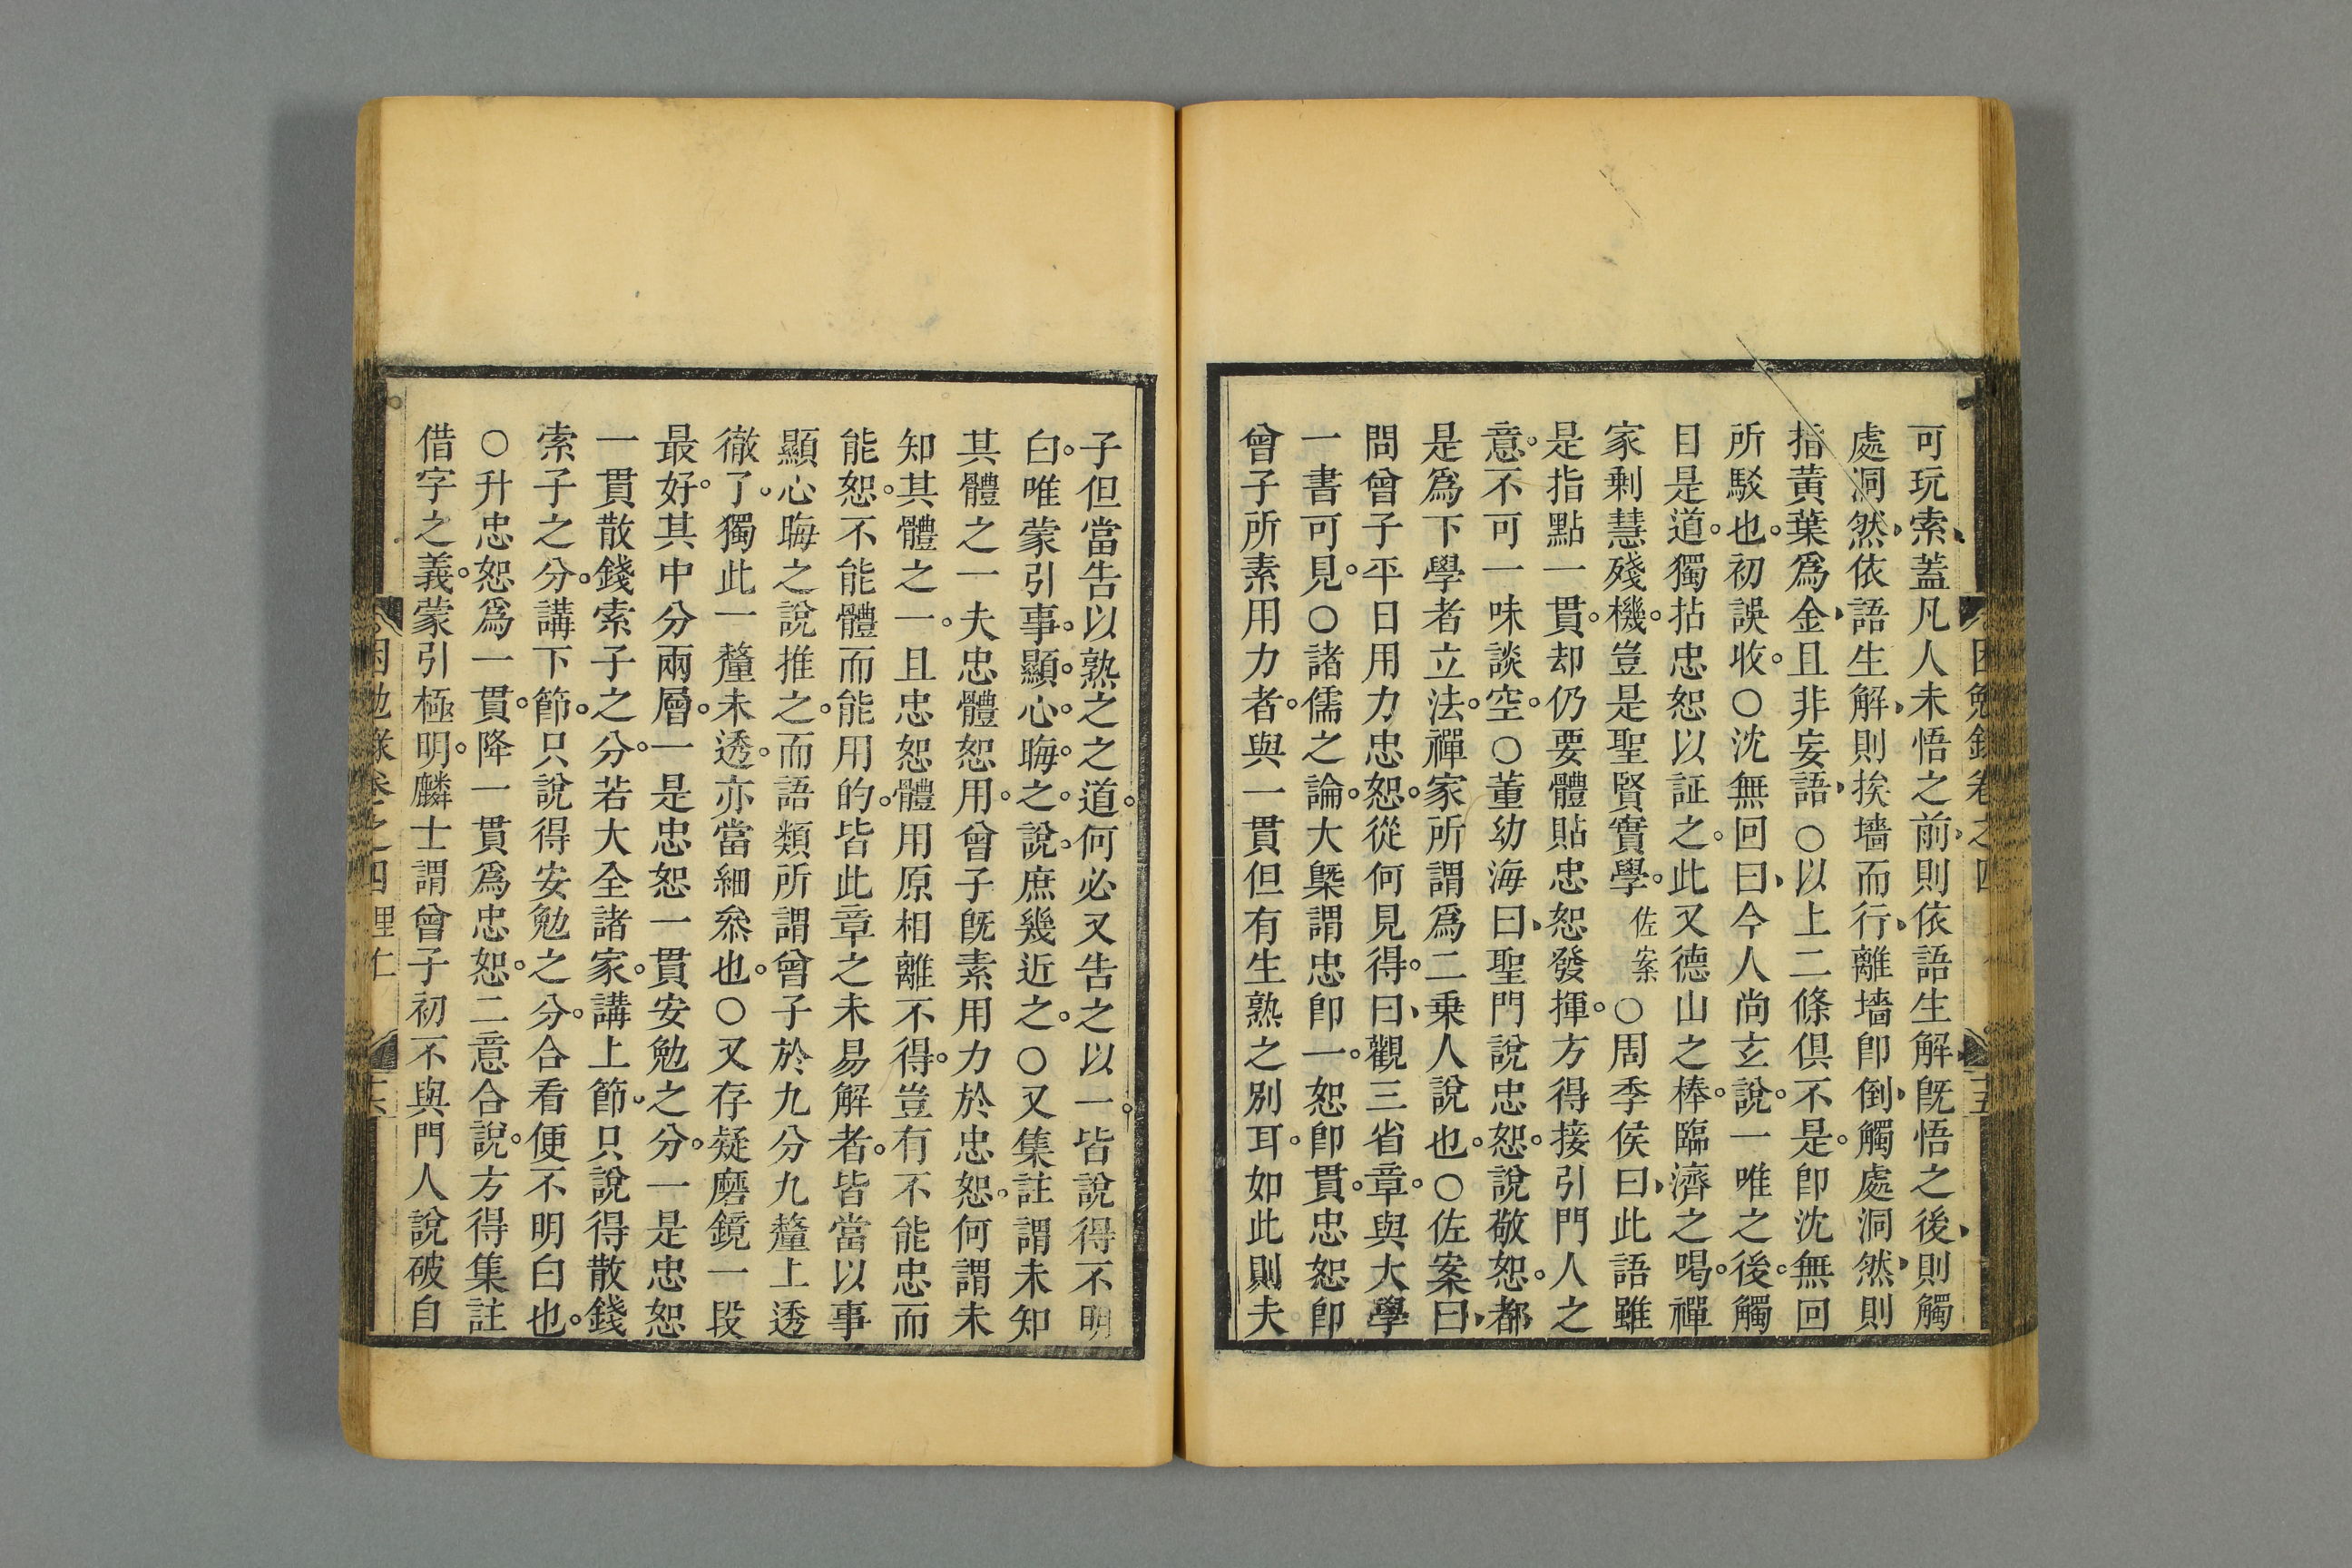 困勉錄卷之四
十五
可玩索蓋凡人未悟之前則依語生解旣悟之後則觸
處洞然依語生解則挨墻而行離墻卽倒觸處洞然則
指黃葉爲金且非妄語○以上二條俱不是卽沈無回
所駁也初誤收○沈無回曰今人尚玄說一唯之後觸
目是道獨拈忠恕以証之此又德山之棒臨濟之喝禪
家剩慧殘機豈是聖賢實學佐案○周季侯曰此語雖
是指點一貫却仍要體貼忠恕發揮方得接引門人之
意不可一味談空○董幼海曰聖門說忠恕說敬恕都
是爲下學者立法禪家所謂爲二乗人說也○佐案曰
問曾子平日用力忠恕從何見得曰觀三省章與大學
一書可見○諸儒之論大槩謂忠卽一恕卽貫忠恕卽
曾子所素用力者與一貫但有生熟之別耳如此則夫
子但當告以熟之之道何必又告之以一皆說得不明
白唯蒙引事顯心晦之說庶幾近之○又集註謂未知
其體之一夫忠體恕用曾子旣素用力於忠恕何謂未
知其體之一且忠恕體用原相離不得豈有不能忠而
能恕不能體而能用的皆此章之未易解者皆當以事
顯心晦之說推之而語類所謂曾子於九分九釐上透
徹了獨此一釐未透亦當細叅也○又存疑磨鏡一段
最好其中分兩層一是忠恕一貫安勉之分一是忠恕
一貫散錢索子之分若大全諸家講上節只說得散錢
索子之分講下節只說得安勉之分合看便不明白也
○升忠恕爲一貫降一貫爲忠恕二意合說方得集註
借字之義蒙引極明麟士謂曾子初不與門人說破自
困勉錄卷之四 里仁
十六